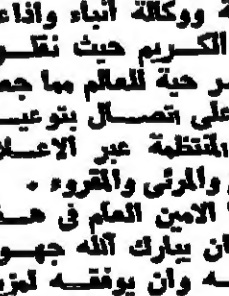 ووكالة أنباء واذا
الكريم حيث نقلـ
حية للعالم مما جمـ
على اتصال بتوعيـ
المنتظمة عبر الاعلا
والمرئى والمقروء .
الامين العام فى هـ
ان يبارك الله جهـو
ـه وان يوفقـه لمز